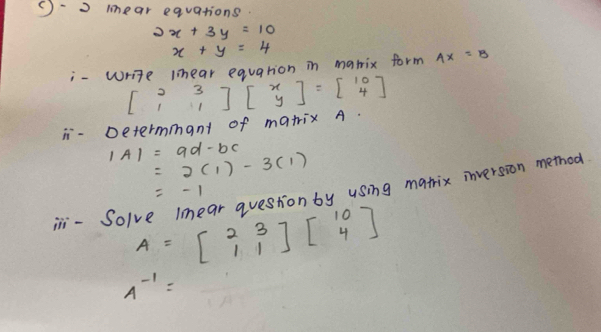 c) - 2 linear equations.
2x + 3y = 10
x + y = 4
i - Write linear equation in matrix form AX = B
[ 2 3 1 1 ] [ x y ] = [ 10 4 ]
ii - Determinant of matrix A.
|A| = ad - bc
= 2(1) - 3(1)
= -1
iii - Solve linear question by using matrix inversion method.
A = [ 2 3 1 1 ] [ 10 4 ]
A⁻¹ =